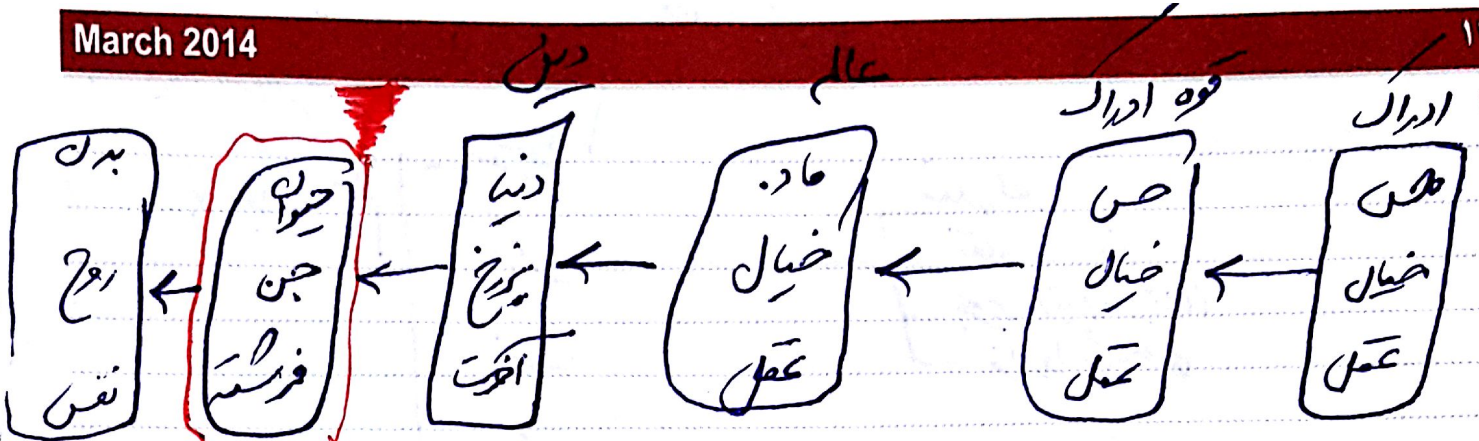 March 2014
ادراک
حس
خیال
عقل
قوه ادراک
حس
خیال
عقل
عالم
ماده
خیال
عقل
دین
دنیا
برزخ
آخرت
حیوان
جن
فرشته
بدن
روح
نفس